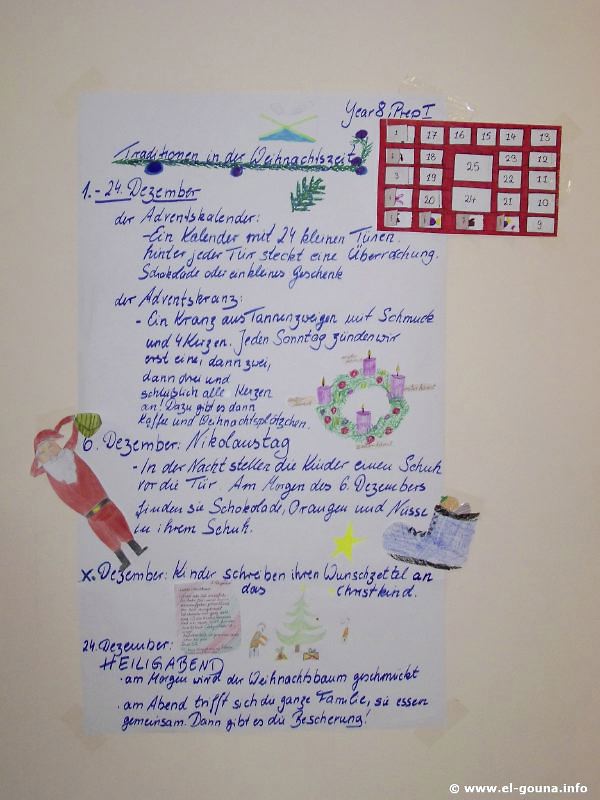 Year 8, Prep I
Traditionen in der Weihnachtszeit
1. - 24. Dezember
der Adventskalender:
- Ein Kalender mit 24 kleinen Türen.
hinter jeder Tür steckt eine Überraschung.
Schokolade oder ein kleines Geschenk
der Adventskranz:
- Ein Kranz aus Tannenzweigen mit Schmuck
und 4 Kerzen. Jeden Sonntag zünden wir
erst eine, dann zwei,
dann drei und
schließlich alle Kerzen
an! Dazu gibt es dann
Kaffe und Weihnachtsplätzchen.
6. Dezember: Nikolaustag
- In der Nacht stellen die Kinder einen Schuh
vor die Tür. Am Morgen des 6. Dezembers
finden sie Schokolade, Orangen und Nüsse
in ihrem Schuh.
x. Dezember: Kinder schreiben ihren Wunschzettel an
das Christkind.
24. Dezember:
HEILIGABEND
· am Morgen wird der Weihnachtsbaum geschmückt
· am Abend trifft sich die ganze Familie, sie essen
gemeinsam. Dann gibt es die Bescherung!
1 17 16 15 14 13
18 25 23 12
3 19 22 11
20 24 21 10
9
© www.el-gouna.info